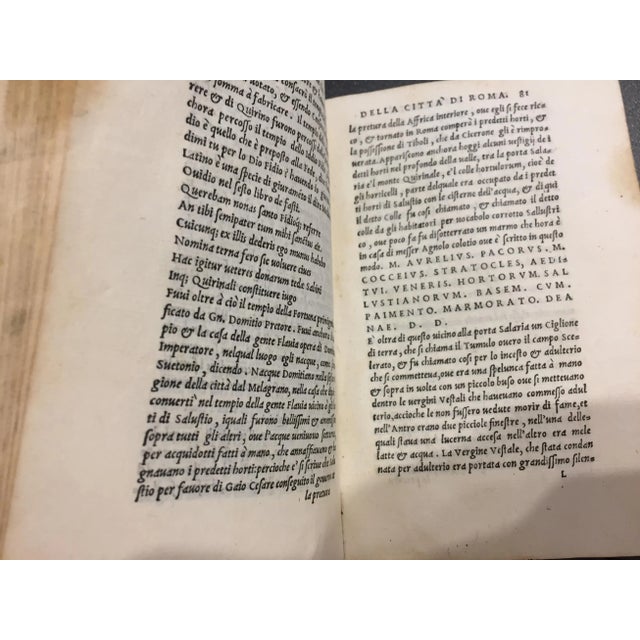 consacrò il
uotato, & essendo
somma à fabricare. Il tempio
rere & di Quirino furono percossi
chora percosso il tempio dello
dio è quello che è preposto alla Fede,
dimi tu per lo Dio Fidio; hauendo lo
Latino è una spetie di giuramēto il detto
Ouidio nel sesto libro de fasti.
Querebam nonas santo Fidioq; referre
An tibi semipater tum mihi sanctus ait.
Cuicunq; ex illis dederis ego munus habebo
Nomina terna fero sic voluere ciues
Hac igitur ueteres donarunt tede Sabini
Inq; Quirinali constituere iugo
Fuui oltre à ciò il tempio della Fortuna primigenia
ficato da Gn. Domitio Pretore. Fuui anchora
pio & la casa della gente Flauia opera di Domitiano
Imperatore, nelqual luogo egli nacque, come
Suetonio, dicendo. Nacque Domitiano nella
gione della città dal Melagrano, nella casa che
conuertì nel tempio della gente Flauia uicino è
ti di Salustio, iquali furono bellissimi & ameni
sopra tutti gli altri, oue l'acque ueniuano
per acquidotti fatti à mano, che annaffauano
i predetti horti: percioche e' si scriue che
stio per fauore di Gaio Cesare conseguito il gouerno
la pretura
DELLA CITTÀ DI ROMA. 81
la pretura della Affrica interiore, oue egli si fece ric
co, & tornato in Roma comperò i predetti horti, &
la possissione di Tiboli, che da Cicerone gli è rimpro
uerata. Appariscono anchora hoggi alcuni uestigij di
detti horti nel profondo della ualle, tra la porta Sala
ria e'l monte Quirinale, e'l colle hortulorum, cioè de
gli horticelli, parte delquale era occupato da i predet
ti horti di Salustio con le cisterne dell'acqua, & di qui
il detto Colle fu cosi chiamato, & chiamato il detto
co da gli habitatori per uocabolo corrotto Sallustri
co, oue poco fa fu disotterrato un marmo che hora è
in casa di messer Agnolo colotio oue è scritto in questo
modo. M. AVRELIVS. PACORVS. M.
COCCEIVS. STRATOCLES, AEDI
TVI. VENERIS. HORTORVM. SAL
LVSTIANORVM. BASEM. CVM.
PAIMENTO. MARMORATO. DEA
NAE. D. D.
E' oltra di questo uicino alla porta Salaria un Ciglione
di terra, che si chiama il Tumulo ouero il campo Sce
lerato, & fu chiamato cosi per lo incesto & adulterio
che si commetteua, oue era una spelunca fatta à mano
& sopra in uolta con un piccolo buso oue si metteuano
dentro le uergini Vestali che haueuano commesso adul
terio, accioche le non fussero uedute morir di fame, et
nell'Antro erano due picciole finestre, nell'una delle
quali staua una lucerna accesa nell'altro era mele
latte & acqua. La Vergine Vestale, che stata condan
nata per adulterio era portata con grandissimo silen
L